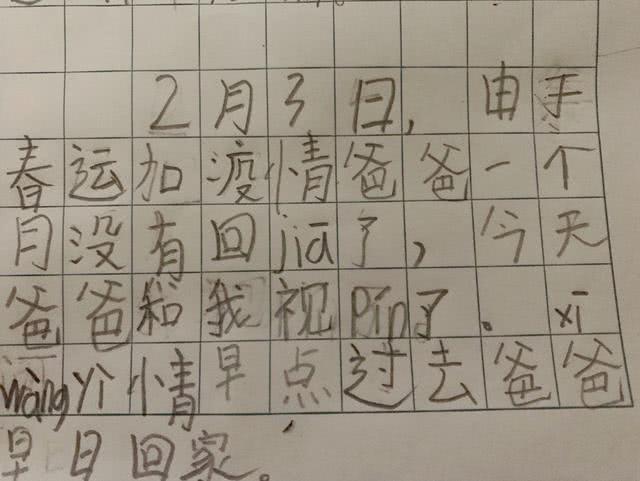 2月3日，由于
春运加疫情爸爸一个
月没有回jiā了，今天
爸爸和我视pín了。xī
wàngyì情早点过去爸爸
早日回家。